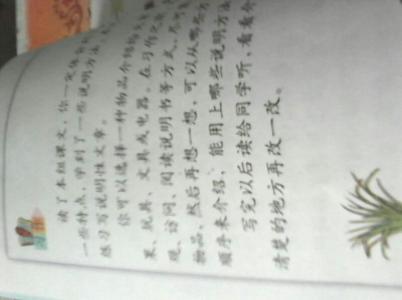 习作
读了本组课文，你一定体会
一些特点，学到了一些说明方法
练习写说明性文章。
你可以选择一种物品介绍给
果、玩具、文具或电器。在习作之前
观、访问、阅读说明书等方式
物品，然后再想一想，可以从哪些方
顺序来介绍，能用上哪些说明方法
写完以后读给同学听，看看
清楚的地方再改一改。